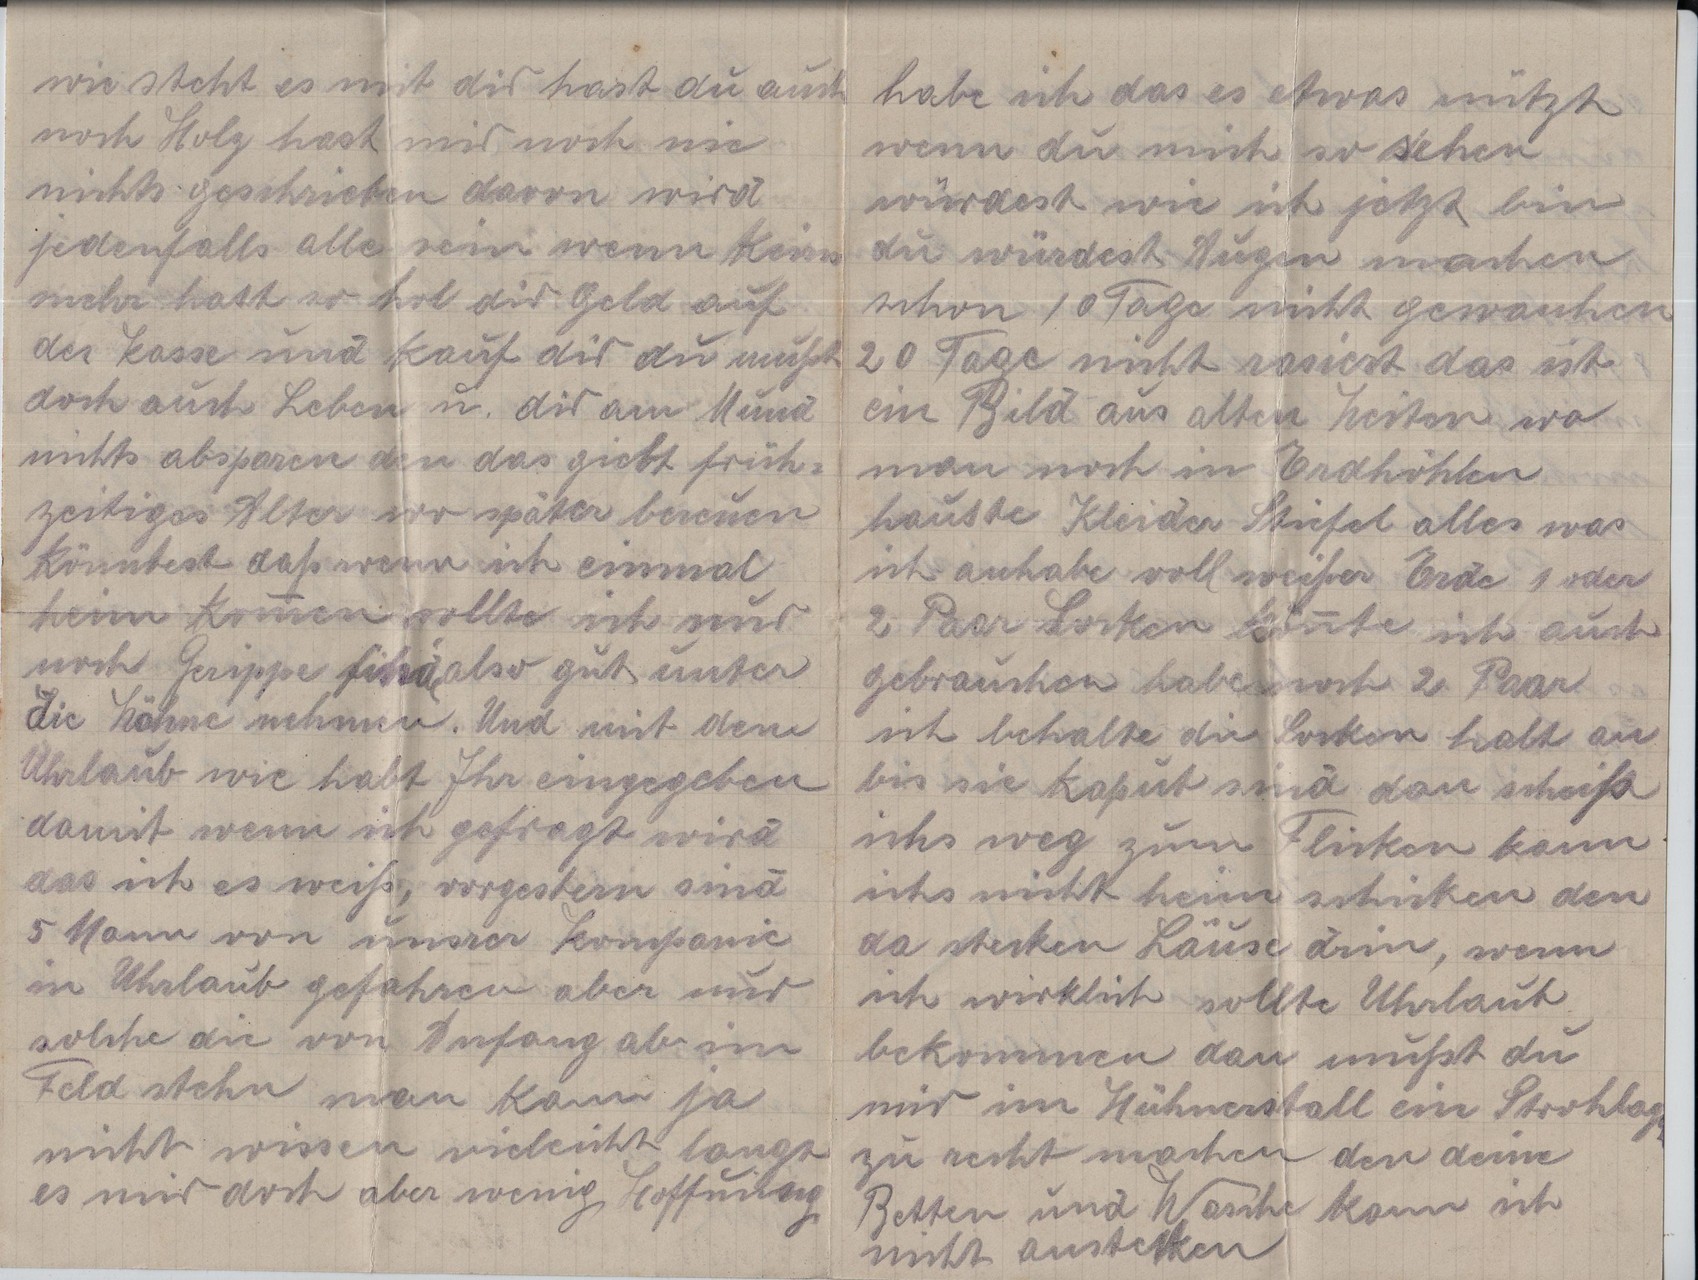 wie steht es mit dir hast du auch
noch Holz hast mir noch nie
nichts geschrieben davon wird
jedenfalls alle sein wenn keins
mehr hast so hol dir Geld auf
der Kasse und kauf dir du mußt
doch auch Leben u. dir am Mund
nichts absparen den das giebt früh=
zeitiges Alter wo später bereuen
könntest daß wenn ich einmal
heim kom̅en sollte ich nur
noch Gerippe find also gut unter
die Zähne nehmen. Und mit dem
Uhrlaub wie habt Ihr eingegeben
damit wenn ich gefragt wird
das ich es weiß, vorgestern sind
5 Mann von unsrer Kompanie
in Uhrlaub gefahren aber nur
solche die von Anfang ab im
Feld stehn man kann ja
nicht wissen vieleicht langt
es mir doch aber wenig Hoffnung
habe ich das es etwas nützt
wenn du mich so sehen
würdest wie ich jetzt bin
du würdest Augen machen
schon 10 Tage nicht gewaschen
20 Tage nicht rasiert das ist
ein Bild aus alten Zeiten wo
man noch in Erdhöhlen
hauste Kleider Stiefel alles was
ich anhabe voll weißer Erde 1 oder
2 Paar Socken kön̅te ich auch
gebrauchen habe noch 2 Paar
ich behalte die Socken halt an
bis sie kaput sind dan scheiß
ichs weg zum Flicken kann
ichs nicht heim schicken den
da stecken Läuse drin, wenn
ich wirklich sollte Uhrlaub
bekommen dan mußt du
mir im Hühnerstall ein Strohlag
zu recht machen den deine
Betten und Wäsche kann ich
nicht anstecken